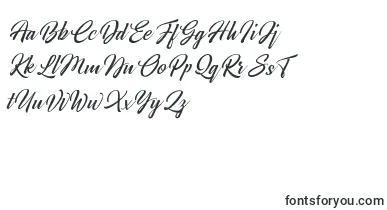 AaBbCcDdEeFfGgHhIiJj
KkLlMmNnOoPpQqRrSsT
tUuVvWwXxYyZz
fontsforyou.com